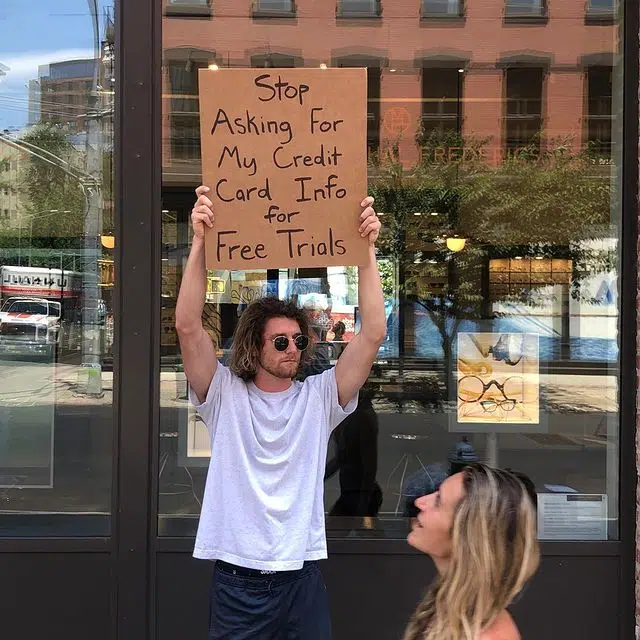 Stop
Asking For
My Credit
Card Info
for
Free Trials